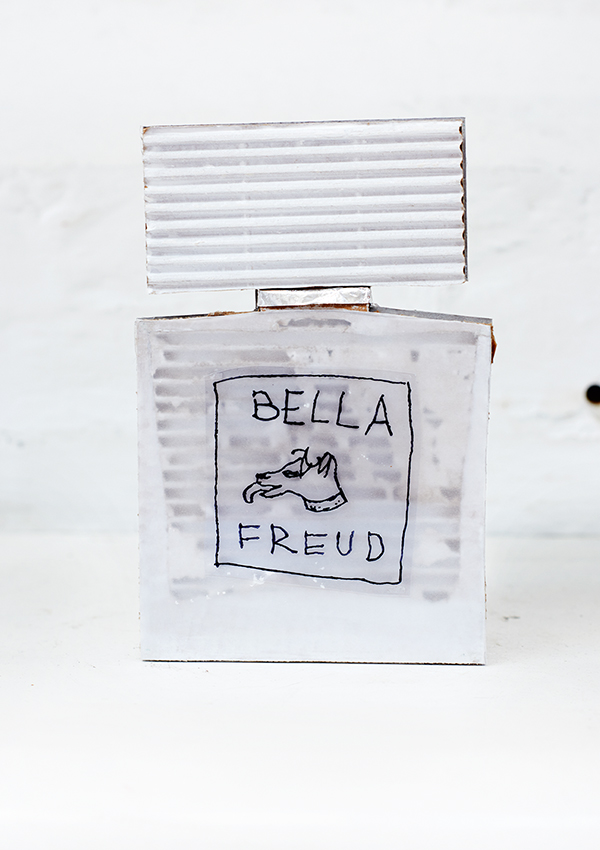 BELLA
FREUD